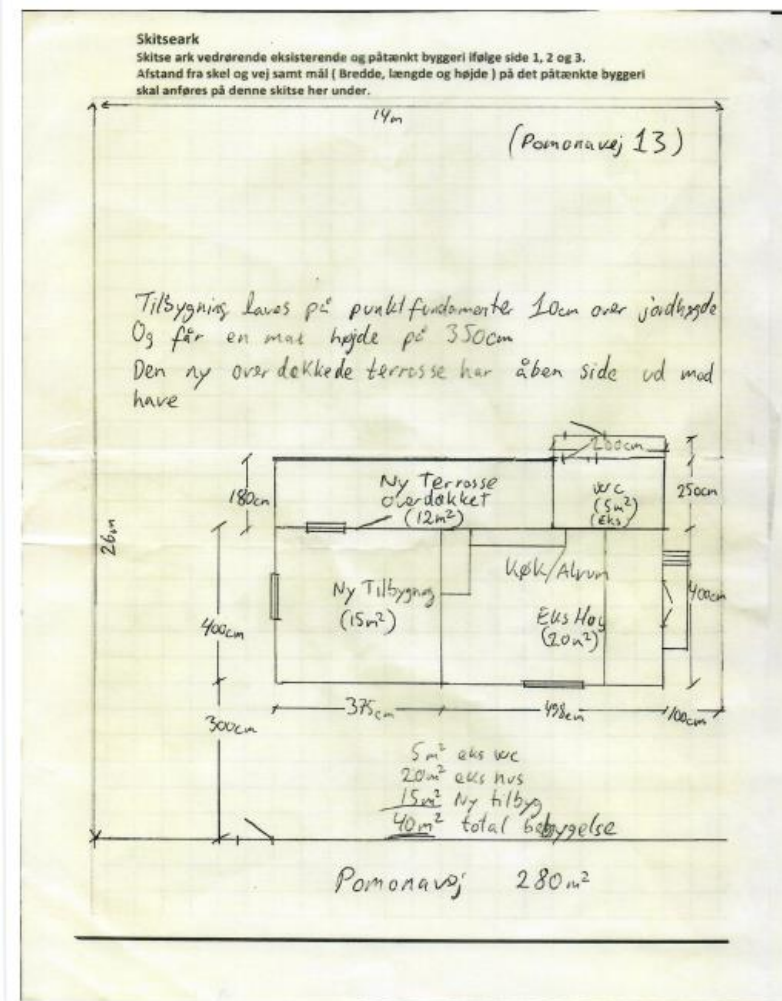 Skitseark
Skitse ark vedrørende eksisterende og påtænkt byggeri ifølge side 1, 2 og 3.
Afstand fra skel og vej samt mål ( Bredde, længde og højde ) på det påtænkte byggeri
skal anføres på denne skitse her under.
14m
(Pomonavej 13)
Tilbygning laves på punktfundamenter 10cm over jordhøjde
Og får en max højde på 350cm
Den ny overdækkede terrosse har åben side ud mod
have
200cm
180cm
Ny Terrosse
overdækket
(12m²)
WC
(5m²)
(Eks)
250cm
26m
Køk/Alrum
Ny Tilbygning
(15m²)
Eks Hus
(20m²)
400cm
400cm
375cm
498cm
100cm
300cm
5m² eks wc
20m² eks hus
15m² Ny tilbyg
40m² total bebygelse
Pomonavej 280m²